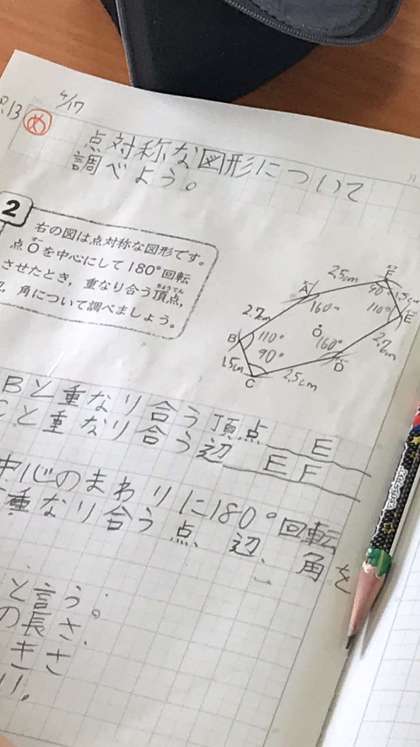 4/17
P.13 め 点対称な図形について
調べよう。
2
右の図は点対称な図形です。
点Oを中心にして180°回転
させたとき，重なり合う頂点，
角について調べましょう。
2.5cm
A 160° F 90°
2.7cm 110° E
B 110° O 160° D 2.7cm
1.5cm 90°
C 2.5cm
Bと重なり合う頂点 E
と重なり合う辺 EF
中心のまわりに180°回転
重なり合う点、辺、角を
と言う。
の長さ
きさ
い。